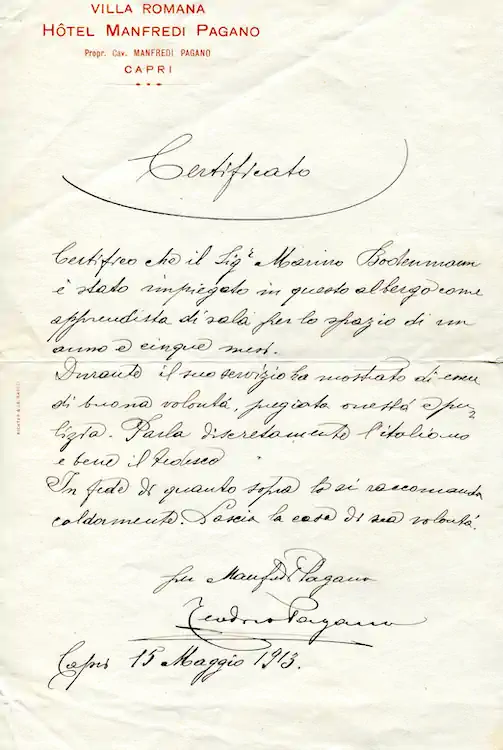 VILLA ROMANA
HÔTEL MANFREDI PAGANO
Propr. Cav. MANFREDI PAGANO
CAPRI
Certificato
Certifico che il Sigr Marino Bodenmann
è stato impiegato in questo albergo come
apprendista di sala per lo spazio di un
anno e cinque mesi.
Durante il suo servizio ha mostrato di esse
di buona volontà, pregiata onestà e pu
lizia. Parla discretamente l'italiano
e bene il tedesco
In fede di quanto sopra lo si raccomanda
caldamente. Lascia la casa di sua volontà.
per Manfredi Pagano
Teodoro Pagano
Capri 15 Maggio 1913.